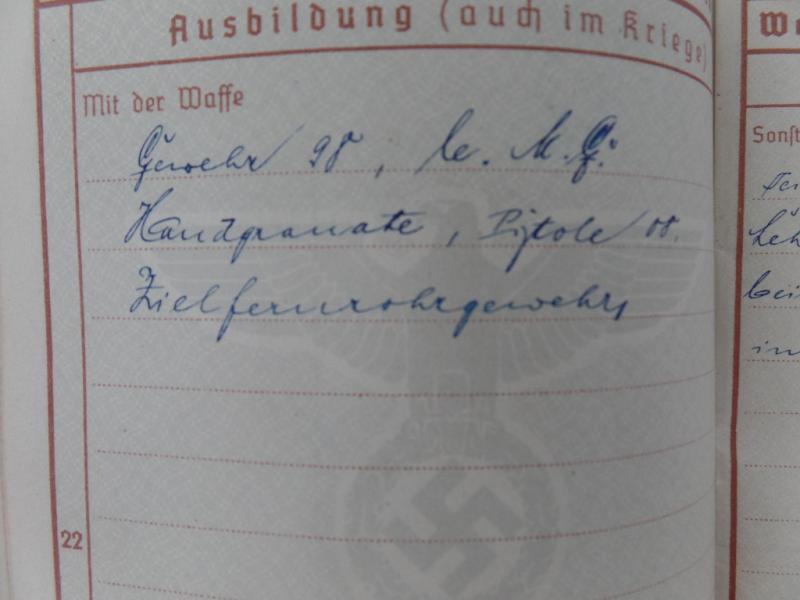 Ausbildung (auch im Kriege)
Mit der Waffe
Gewehr 98, le. M. G.
Handgranate, Pistole 08.
Zielfernrohrgewehr,
22